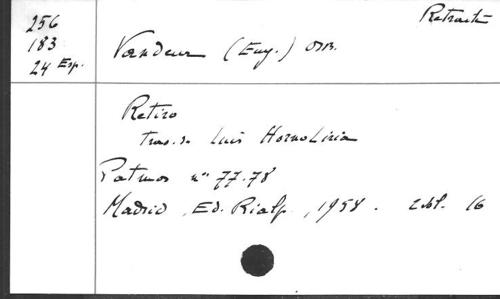 Retraite
256
183
24 Esp.
Vandeur (Eug.) OSB.
Retiro
Trad. de Luis Horno Liria
Patmos nos 77-78
Madrid, Ed. Rialp, 1958. 2 vol. 16